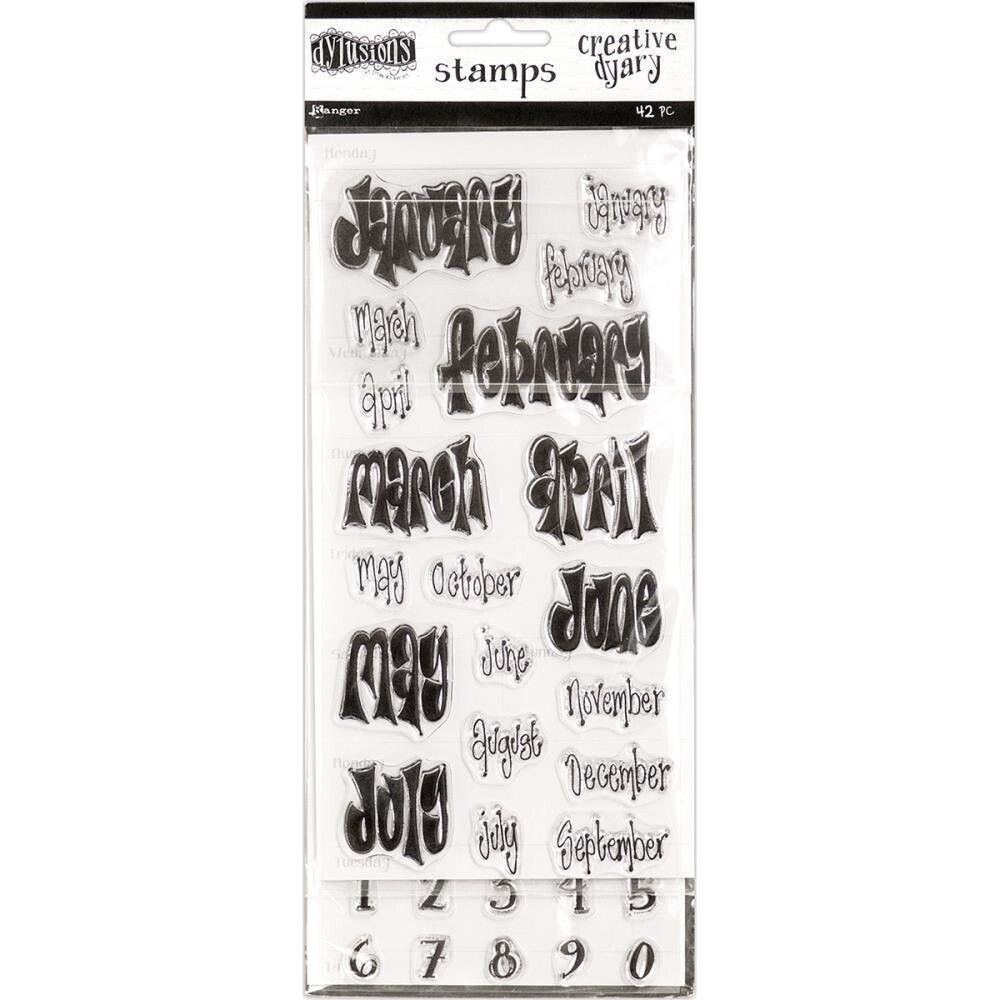 dylusions
creative
dyary
stamps
Ranger
42 PC
Monday
January
January
february
march
february
Wednesday
april
march
april
Friday
may
October
June
may
june
November
august
Monday
December
July
july
September
Tuesday
1 2 3 4 5
6 7 8 9 0